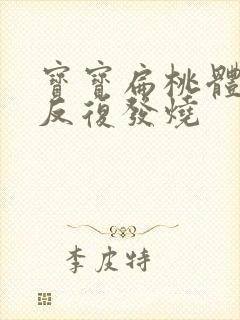 寶寶扁桃體
反復發燒
李皮特